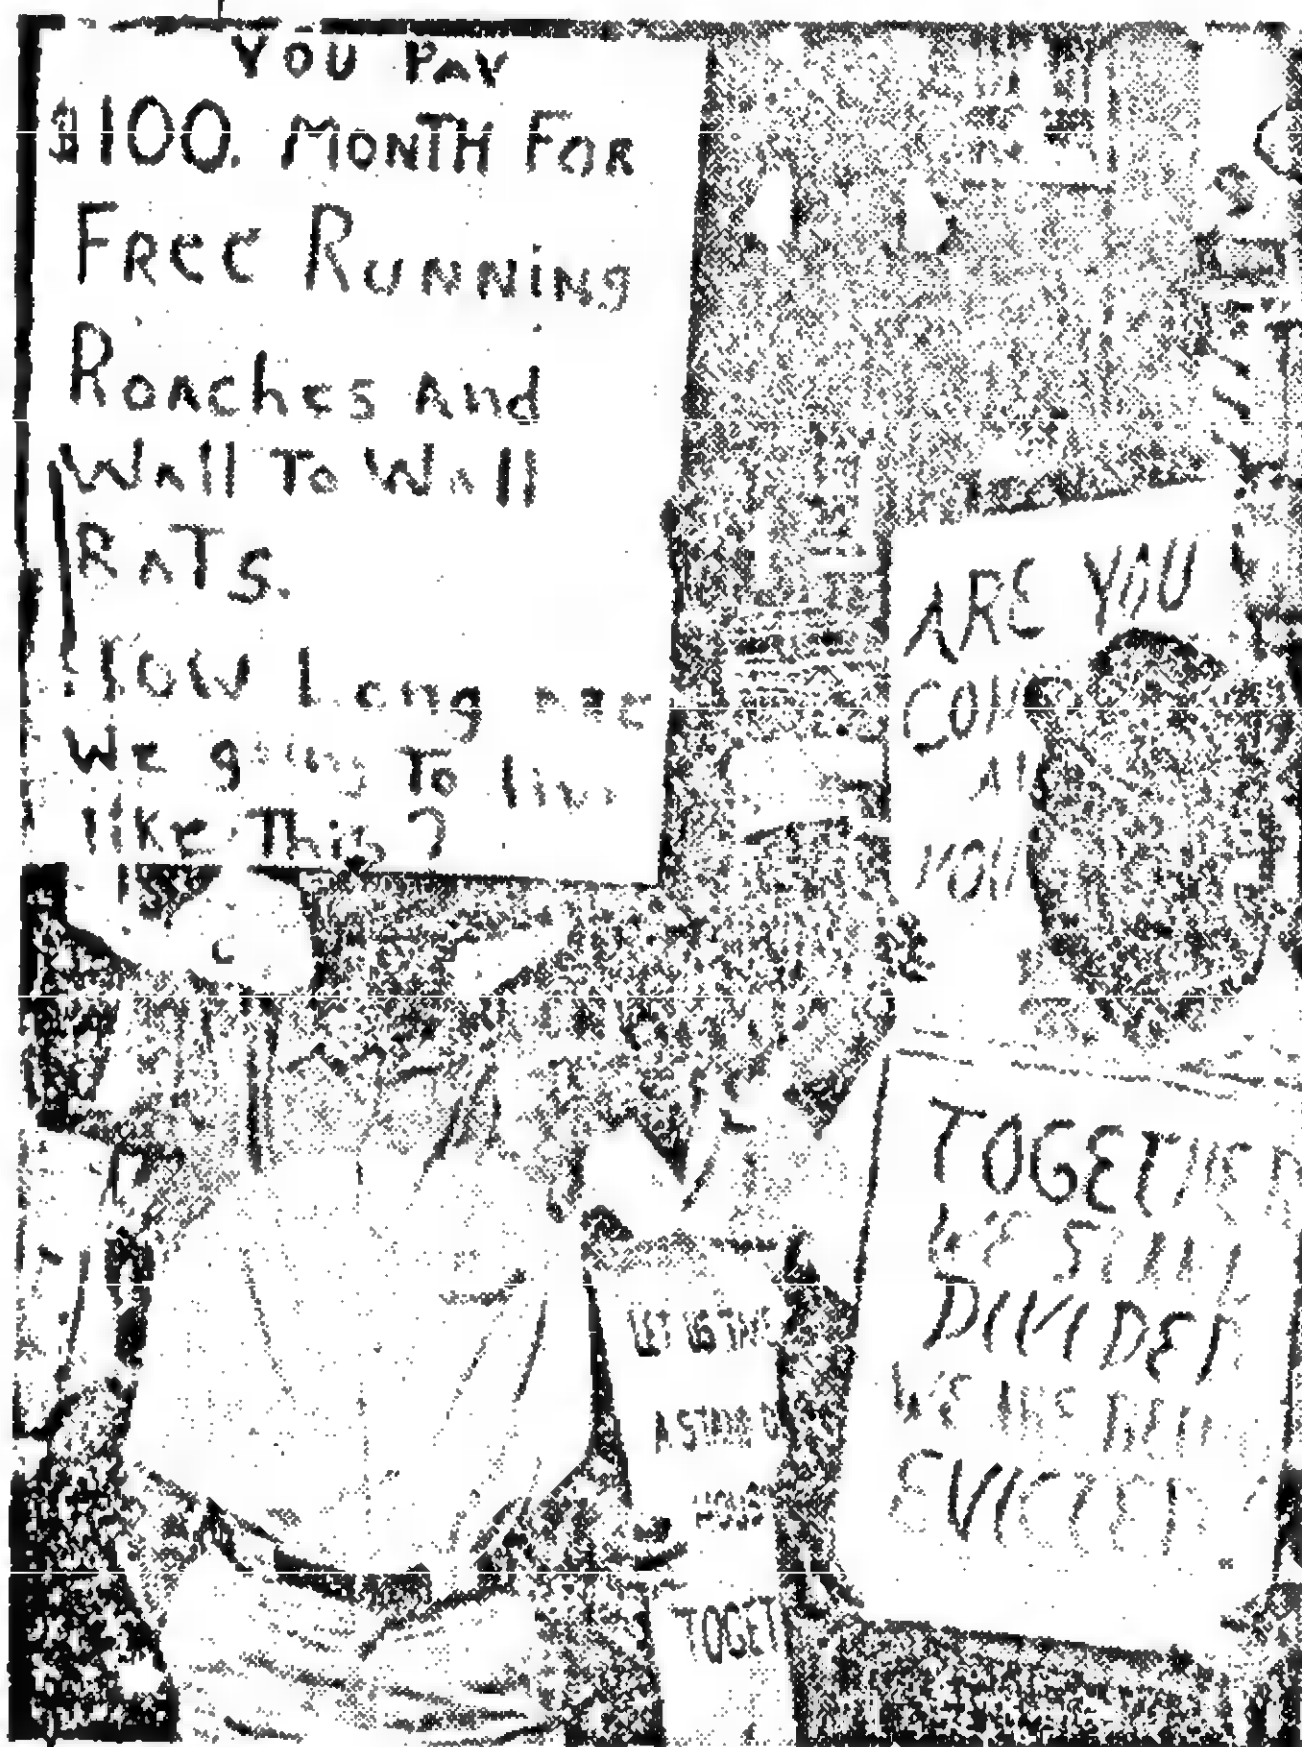 YOU PAY
$100. MONTH FOR
FREE RUNNING
ROACHES AND
WALL TO WALL
RATS.
HOW LONG ARE
WE going TO live
like This?
ARE YOU
TOGETHER
WE STAND
DIVIDED
WE ARE
EVICTED
LET US TAKE
A STAND
TOGET